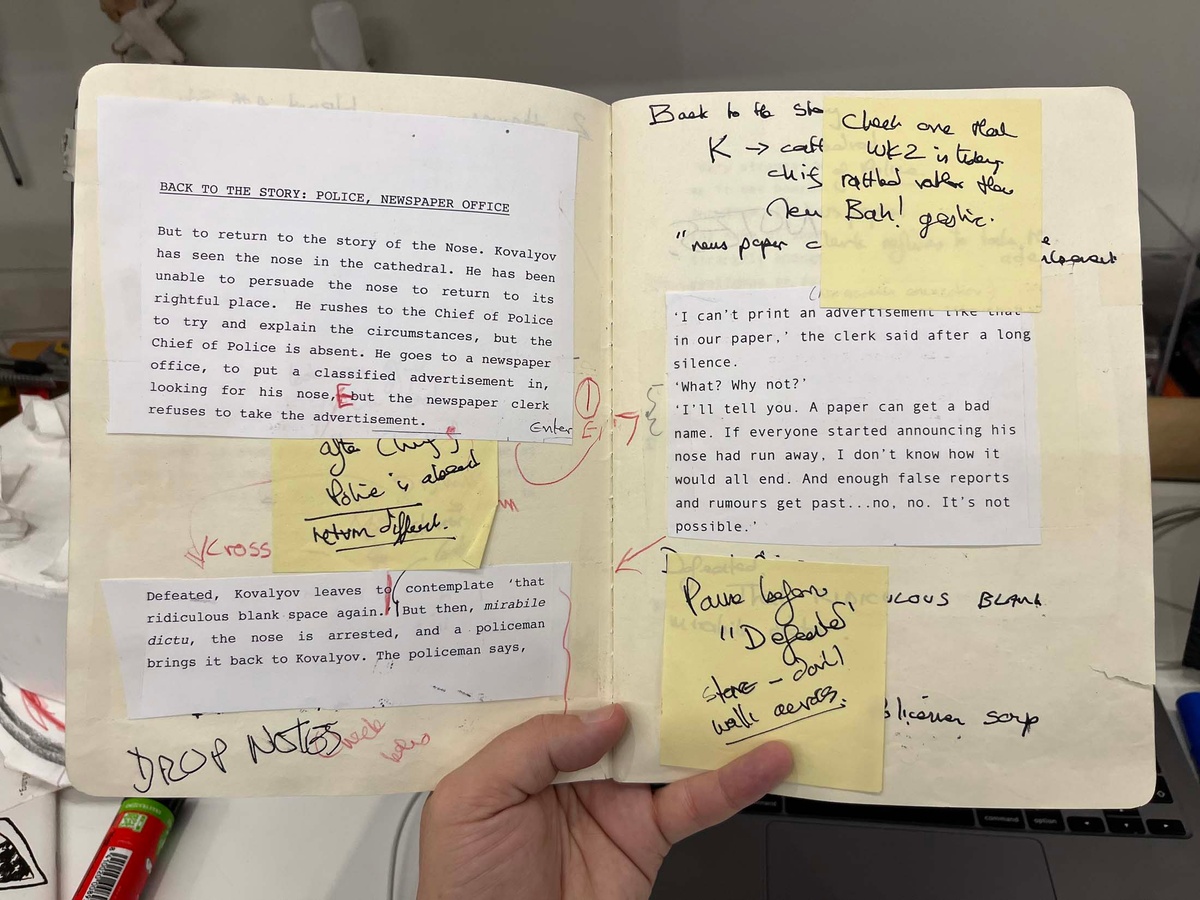 BACK TO THE STORY: POLICE, NEWSPAPER OFFICE
But to return to the story of the Nose. Kovalyov
has seen the nose in the cathedral. He has been
unable to persuade the nose to return to its
rightful place. He rushes to the Chief of Police
to try and explain the circumstances, but the
Chief of Police is absent. He goes to a newspaper
office, to put a classified advertisement in,
looking for his nose, E but the newspaper clerk
refuses to take the advertisement.
Enter
after Chief
Police is absent
return different.
Cross
Defeated, Kovalyov leaves to contemplate 'that
ridiculous blank space again. But then, mirabile
dictu, the nose is arrested, and a policeman
brings it back to Kovalyov. The policeman says,
DROP NOTES
I
E
Back to the sto
K →
chif
"news paper c
Check one that
WK2 is today
rattled rather than
Bah! gestic.
'I can't print an advertisement like that
in our paper,' the clerk said after a long
silence.
'What? Why not?'
'I'll tell you. A paper can get a bad
name. If everyone started announcing his
nose had run away, I don't know how it
would all end. And enough false reports
and rumours get past...no, no. It's not
possible.'
Pause before
"Defeated'
stare - don't
walk across.
ULOUS BLANK
liceman scrip